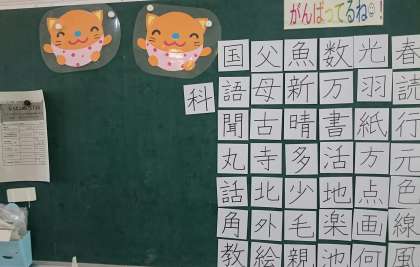 がんばってるね!
国 父 魚 数 光 春
科 語 母 新 万 羽 読
聞 古 晴 書 紙 行
丸 寺 多 活 方 元
話 北 少 地 点 色
角 外 毛 楽 画 線
教 絵 親 池 何 風